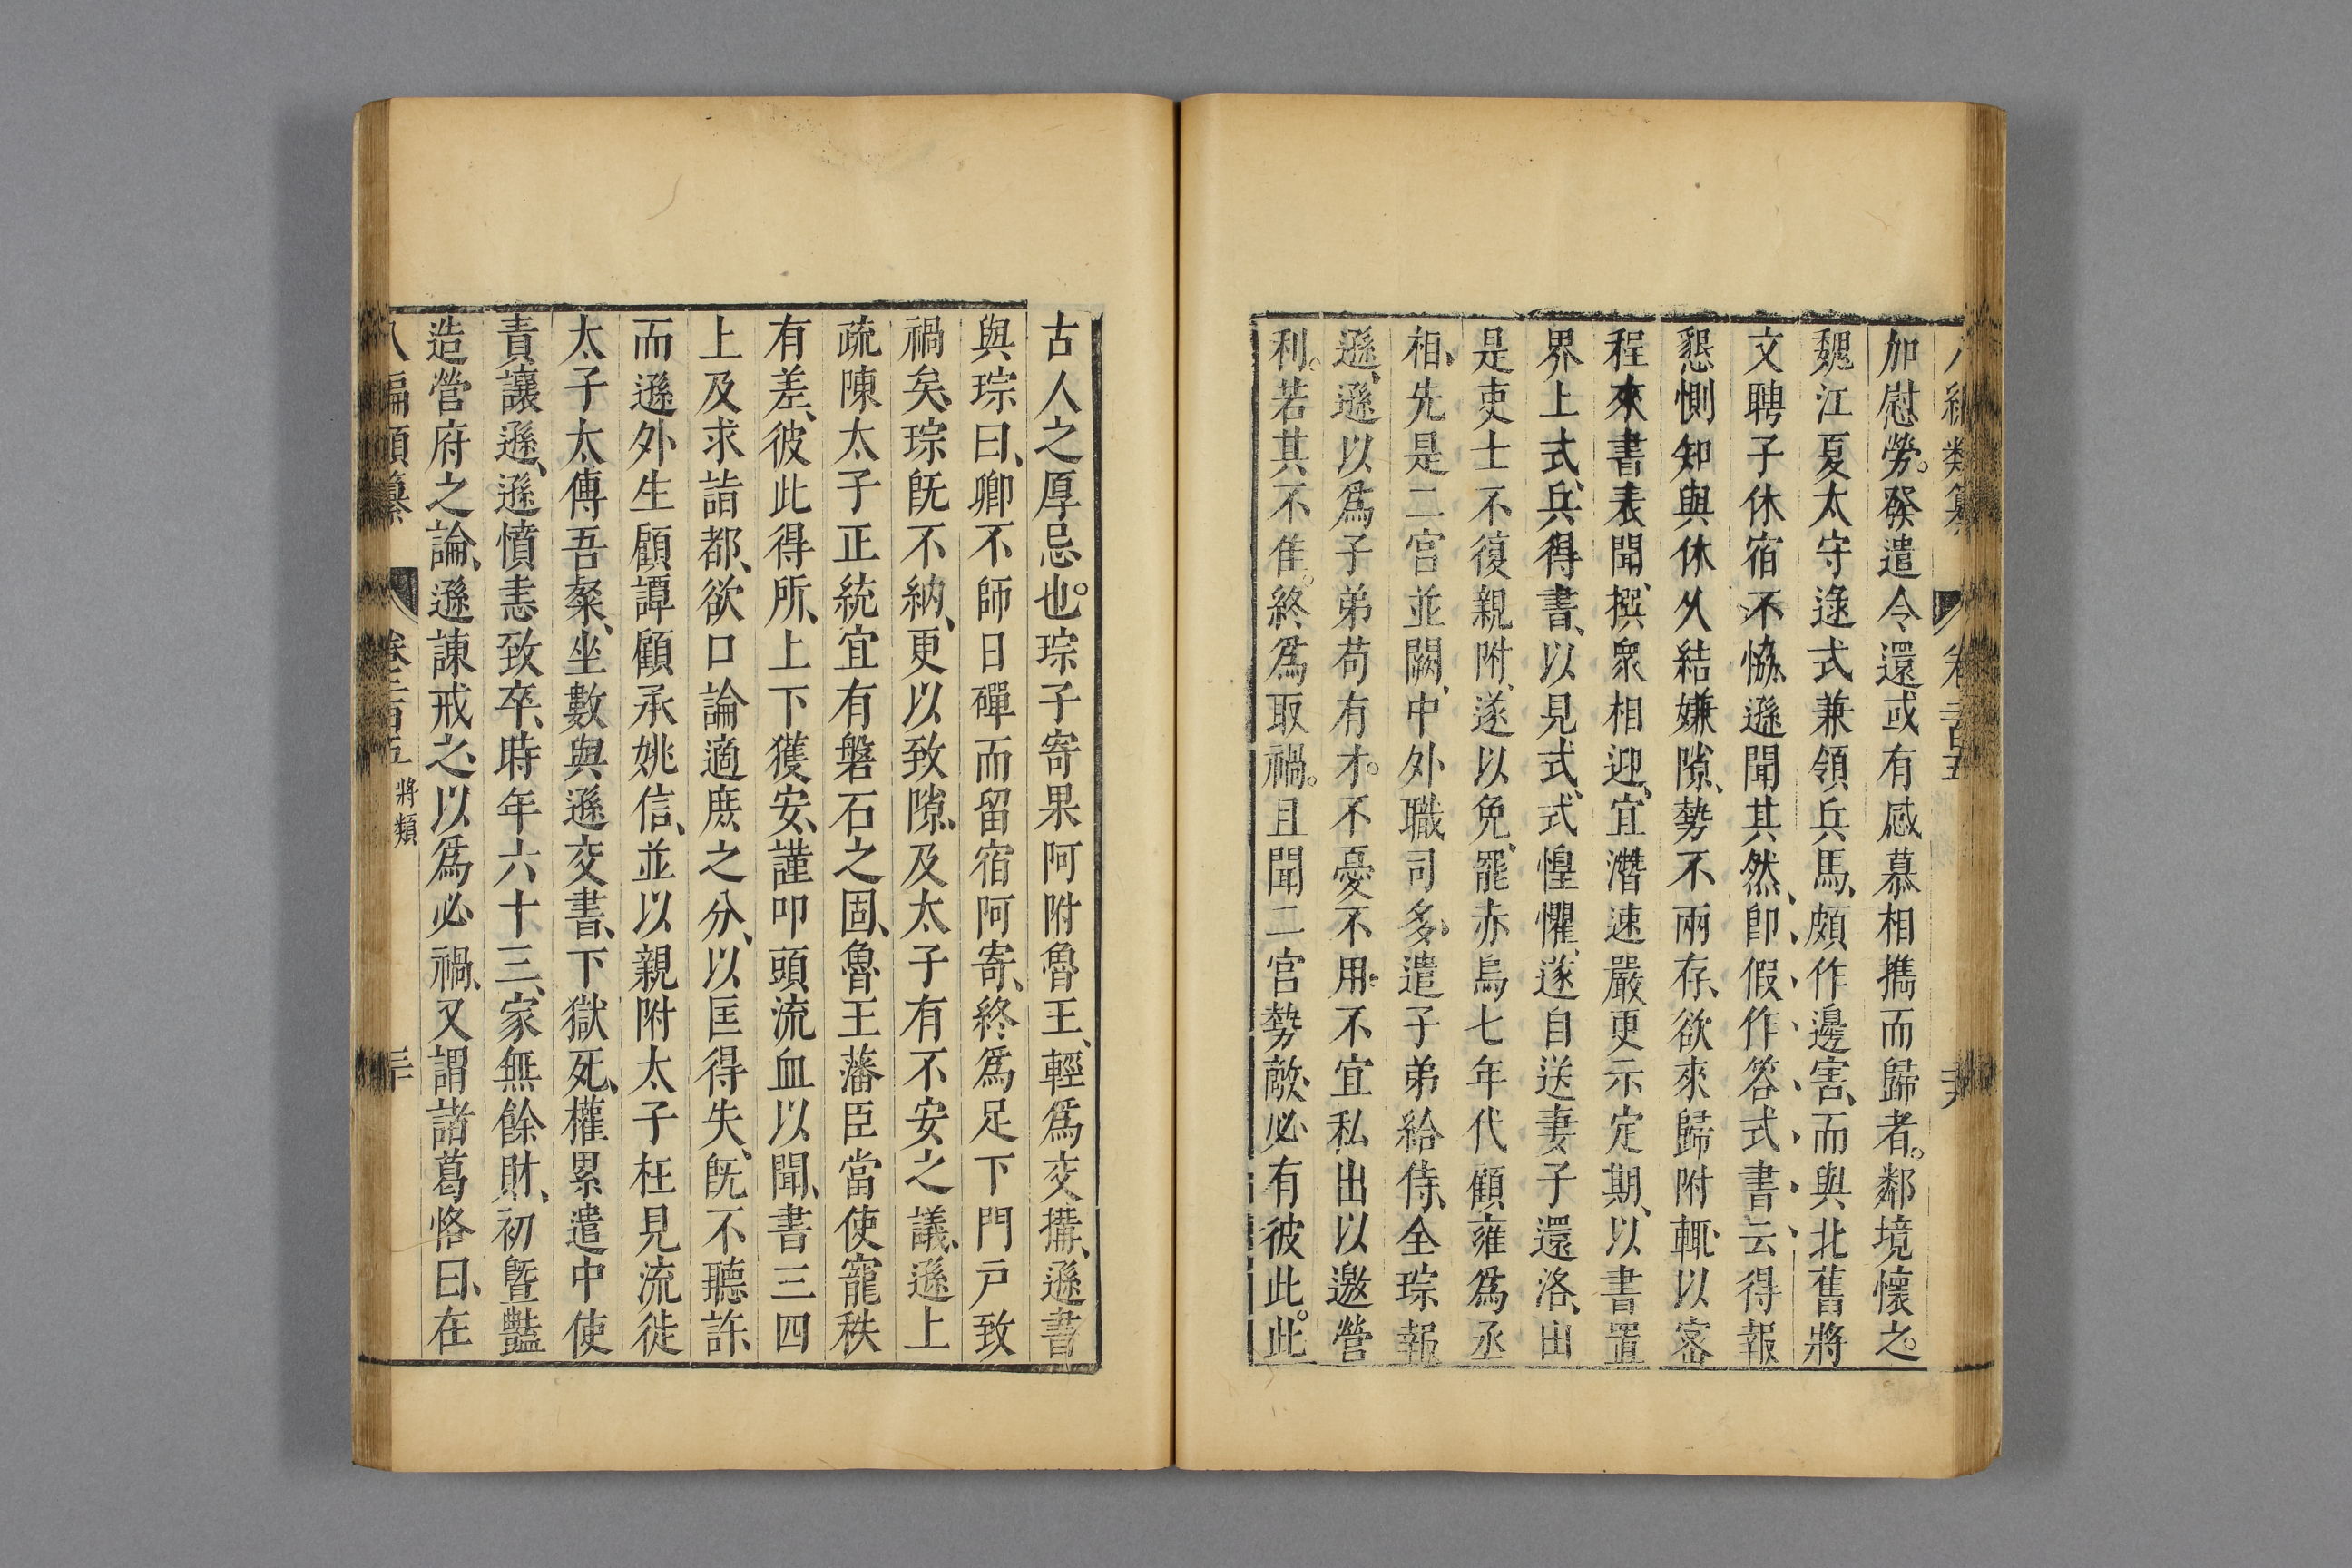 加慰勞。發遣令還或有感慕相攜而歸者。鄰境懷之。
魏江夏太守逯式兼領兵馬、頗作邊害、而與北舊將
文聘子休宿不恊、遜聞其然、卽假作答式書云得報
懇惻知與休乆結嫌隙、勢不兩存、欲來歸附輒以密
程來書表聞、撰衆相迎、宜濳速嚴更示定期、以書置
界上式、兵得書、以見式、式惶懼、遂自送妻子還洛、由
是吏士不復親附、遂以免、罷赤烏七年代顧雍爲丞
相、先是二宫並闕、中外職司多遣子弟給侍、全琮報
遜、遜以爲子弟苟有才。不憂不用、不宜私出以邀營
利。若其不佳。終爲取禍。且聞二宫勢敵、必有彼此。此
古人之厚忌也。琮子寄果阿附魯王、輕爲交搆、遜書
與琮曰、卿不師日磾而留宿阿寄、終爲足下門戸致
禍矣、琮旣不納、更以致隙、及太子有不安之議、遜上
疏陳太子正統宜有磐石之固、魯王藩臣當使寵秩
有差、彼此得所、上下獲安、謹叩頭流血以聞、書三四
上及求詣都、欲口論適庶之分、以匡得失、旣不聽許、
而遜外生顧譚顧承姚信、並以親附太子枉見流徙
太子太傅吾粲、坐數與遜交書、下獄死、權累遣中使
責讓遜、遜憤恚致卒、時年六十三、家無餘財、初曁豔
造營府之論、遜諫戒之、以爲必禍、又謂諸葛恪曰、在
八編類纂 卷二百五 將類 三十